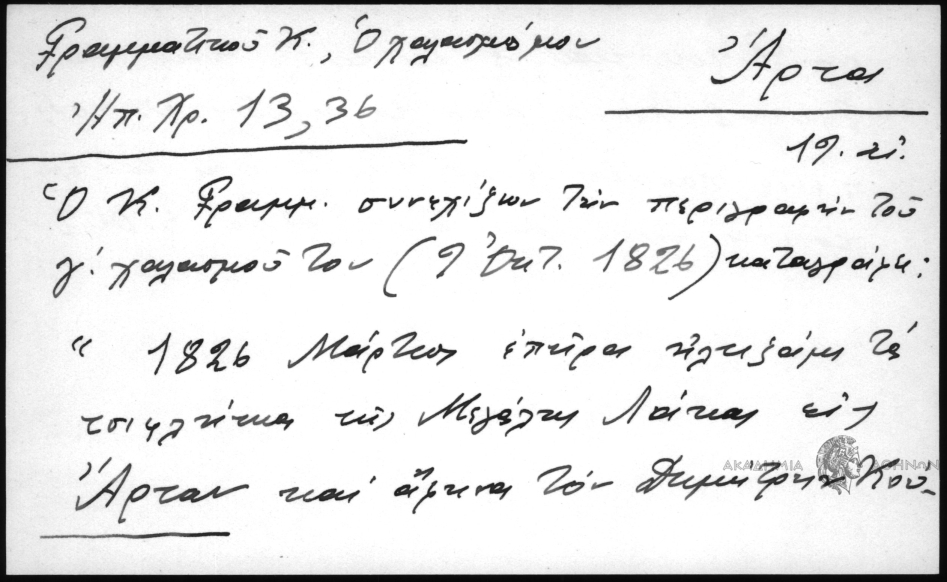 Γραμματικοῦ Κ., Ὁ χαλασμός μου
Ἠπ. Χρ. 13, 36
Ἄρτα
19. αἰ.
Ὁ Κ. Γραμμ. συνεχίζων τὴν περιγραφὴν τοῦ
γ΄. χαλασμοῦ του (9 Ὀκτ. 1826) καταγράφει:
“ 1826 Μάρτιος ἐπῆρα τὰ
τσιφλίκια τῆς Μεγάλης Λάκας εἰς
Ἄρταν καὶ ἄφηνα τὸν Δημήτρην Κου-
ΑΚΑΔΗΜΙΑ ΑΘΗΝΩΝ